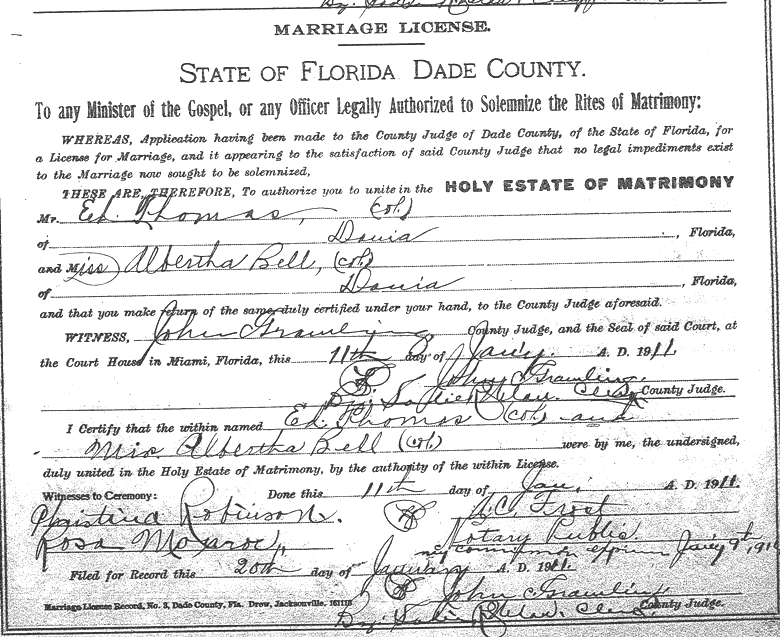 MARRIAGE LICENSE.
STATE OF FLORIDA DADE COUNTY.
To any Minister of the Gospel, or any Officer Legally Authorized to Solemnize the Rites of Matrimony:
WHEREAS, Application having been made to the County Judge of Dade County, of the State of Florida, for
a License for Marriage, and it appearing to the satisfaction of said County Judge that no legal impediments exist
to the Marriage now sought to be solemnized,
THESE ARE, THEREFORE, To authorize you to unite in the HOLY ESTATE OF MATRIMONY
Mr. Ed. Thomas, (col.)
of Dania, Florida,
and Miss Albertha Bell, (col)
of Dania, Florida,
and that you make return of the same duly certified under your hand, to the County Judge aforesaid.
WITNESS, John Gramling County Judge, and the Seal of said Court, at
the Court House in Miami, Florida, this 11th day of Jany. A. D. 1911.
John Gramling.
By: Clerk County Judge.
I Certify that the within named Ed. Thomas (col.) and
Miss Albertha Bell (col) were by me, the undersigned,
duly united in the Holy Estate of Matrimony, by the authority of the within License.
Witnesses to Ceremony: Done this 11th day of Jan. A. D. 1911.
Christina Robinson. A.C. Frost
Rosa Monroe, Notary Public.
my commission expires Jany 9th, 191
Filed for Record this 20th day of January A. D. 1911.
John Gramling
Marriage License Record, No. 3, Dade County, Fla. Drew, Jacksonville, County Judge.
By: Clerk